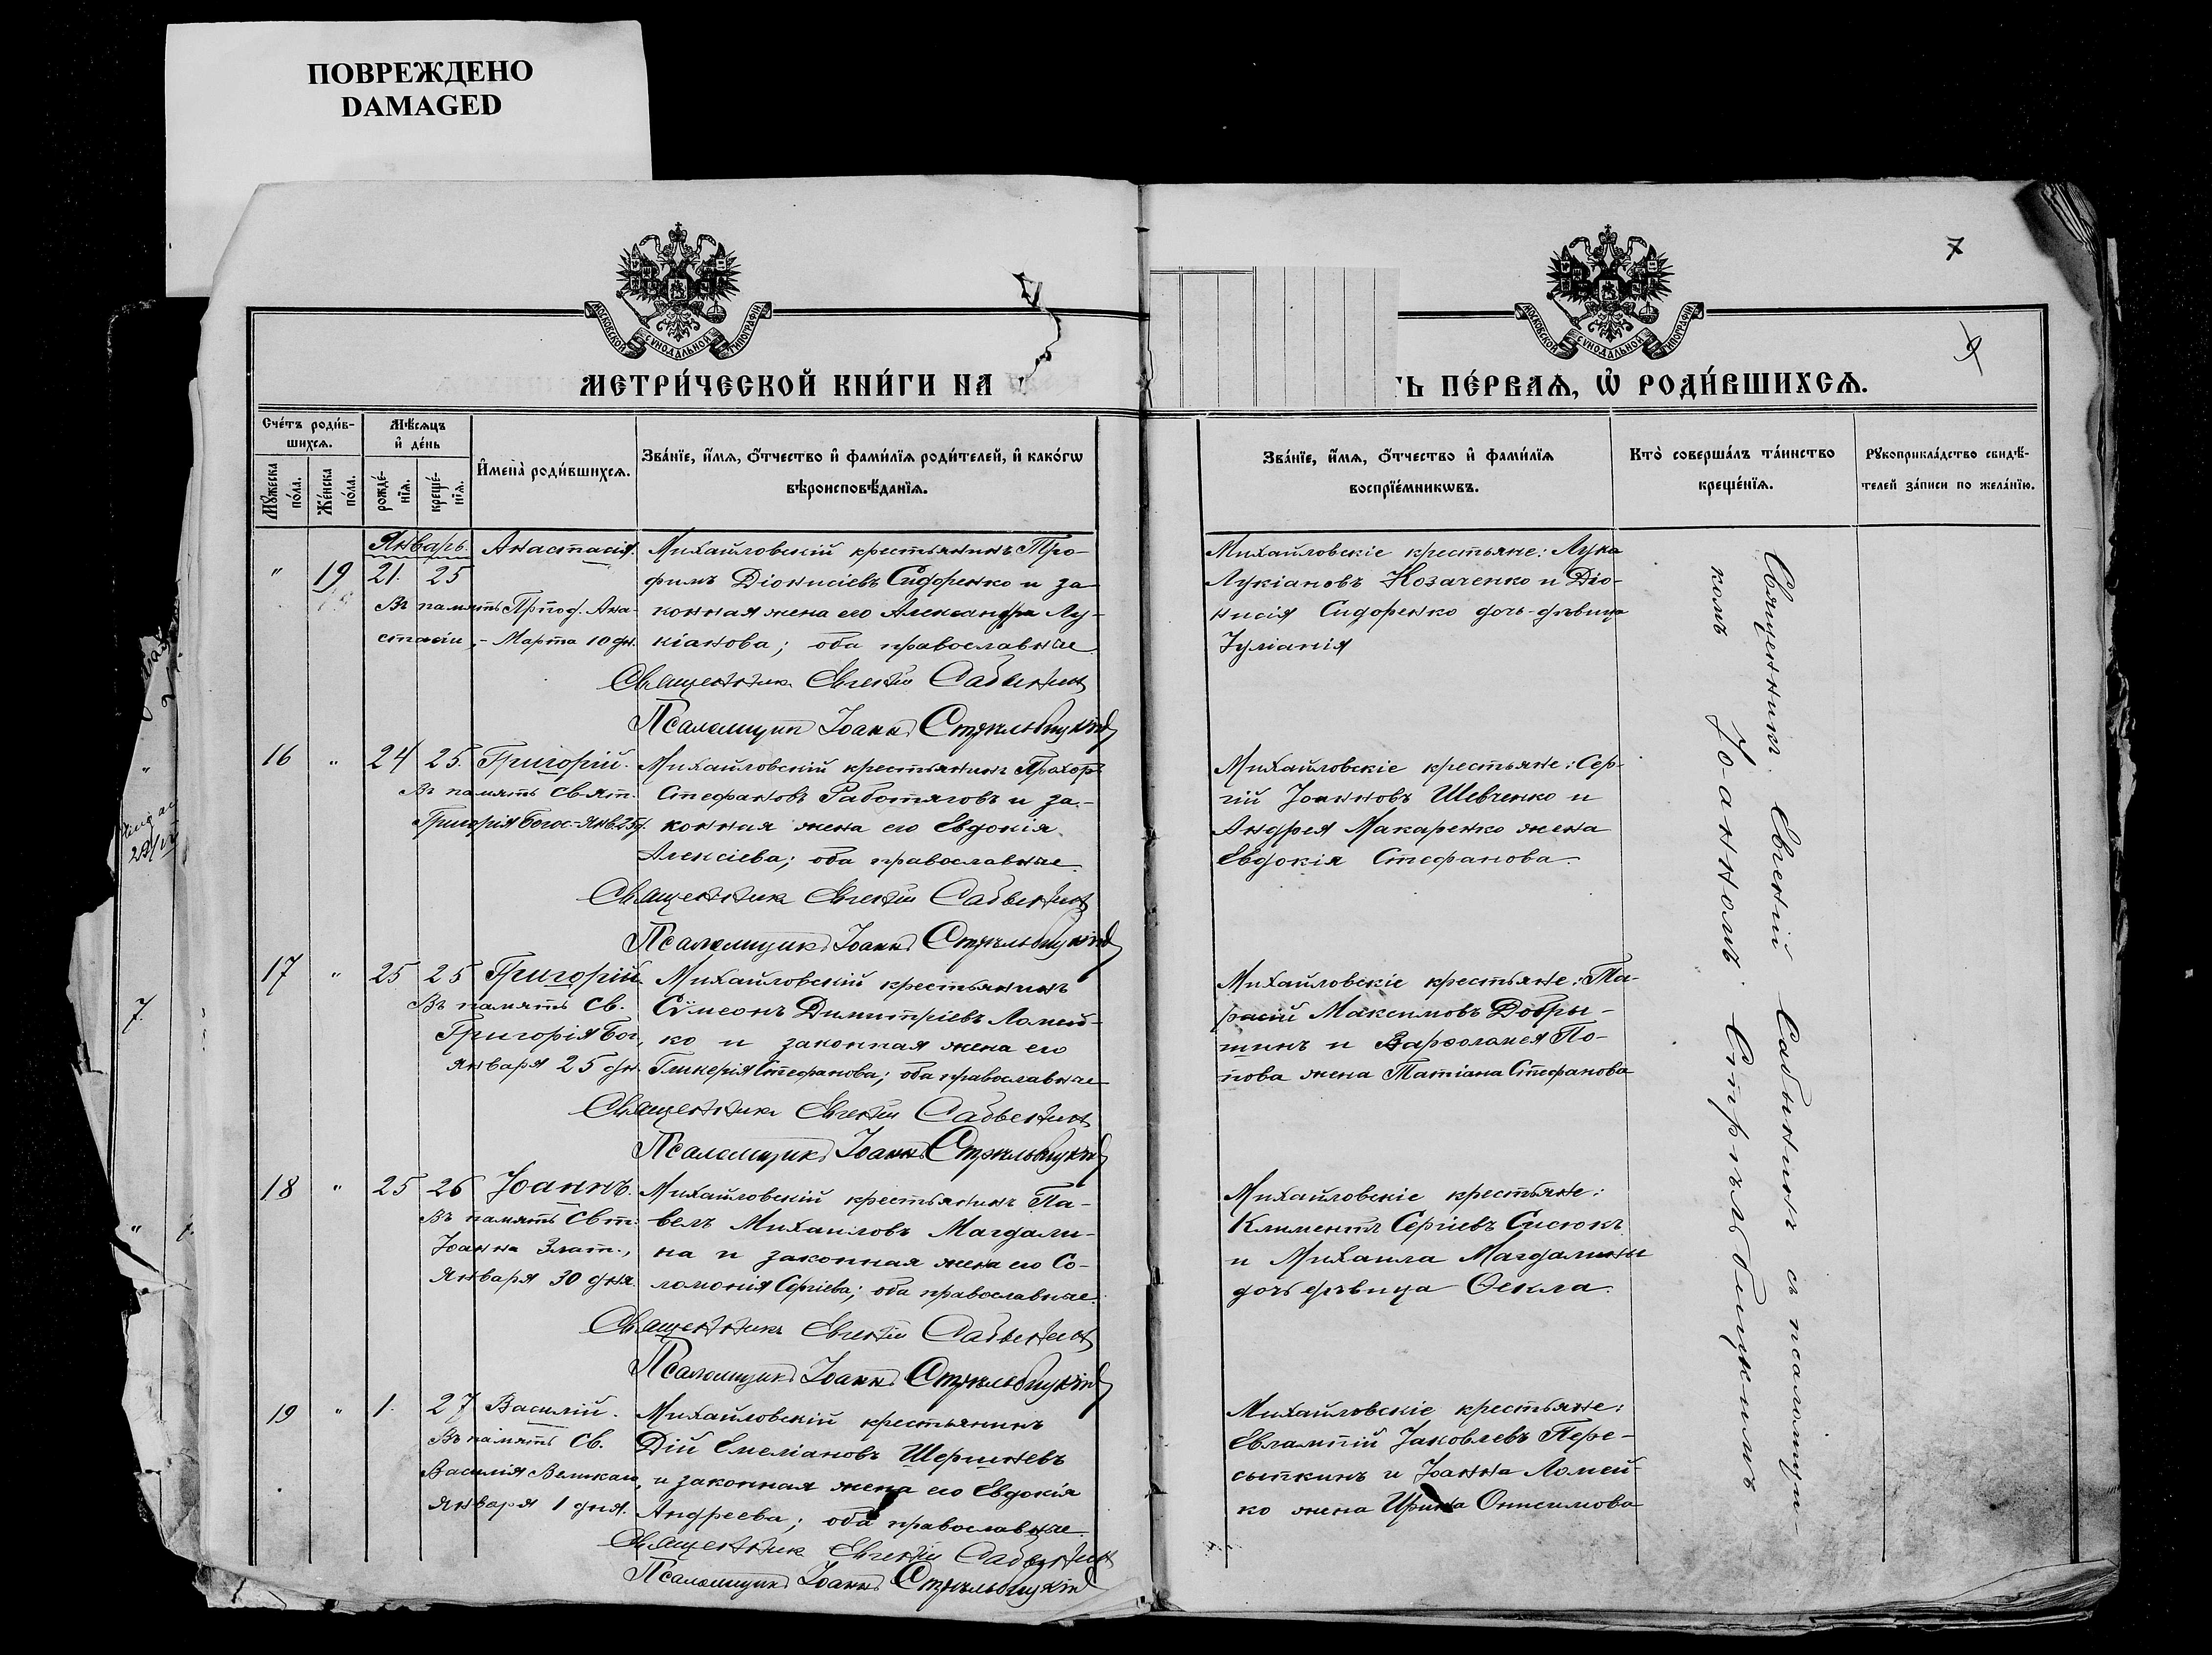 ПОВРЕЖДЕНО
DAMAGED
7
МОСКОВСКОЙ СѴНОДАЛЬНОЙ ТИПОГРАФІИ
МОСКОВСКОЙ СѴНОДАЛЬНОЙ ТИПОГРАФІИ
МЕТРИ́ЧЕСКОЙ КНИ́ГИ НА
Ь ПЕ́РВАѦ, Ѽ РОДИ́ВШИХСѦ.
Сче́тъ роди́в-
шихсѧ.
Мѣ́сѧцъ
и҆ де́нь
Мꙋ́жеска
по́ла.
Же́нска
по́ла.
рожде́-
нїѧ.
креще́-
нїѧ.
И҆мена̀ роди́вшихсѧ.
Зва́нїе, и҆́мѧ, ѻ҆́тчество и҆ фами́лїѧ роди́телей, и҆ како́гѡ
вѣроисповѣ́данїѧ.
Зва́нїе, и҆́мѧ, ѻ҆́тчество и҆ фами́лїѧ
воспрїе́мникѡвъ.
Кто̀ соверша́лъ та́инство
креще́нїѧ.
Рꙋкоприкла́дство свидѣ́-
телей за́писи по жела́нїю.
Январь.
" 19 21. 25
Анастасія.
Въ память Преп. Ана-
стасіи, - Марта 10 дн.
Михайловскій крестьянинъ Тро-
фимъ Діонисіевъ Сидоренко и за
конная жена его Александра Лу-
кіанова; оба православные
Священникъ Евгеній Савинъ
Псаломщикъ Іоаннъ Стрѣльбицкій
Михайловскіе крестьяне: Лука
Лукіановъ Козаченко и Діо-
нисія Сидоренко дочь-дѣвица
Іуліанія
16 " 24 25. Григорій.
Въ память Свят.
Григорія Богос.-Янв. 25 д.
Михайловскій крестьянинъ Прохоръ
Стефановъ Работяговъ и за-
конная жена его Евдокія
Алексіева; оба православные
Священникъ Евгеній Савинъ
Псаломщикъ Іоаннъ Стрѣльбицкій
Михайловскіе крестьяне: Сер-
гій Іоанновъ Шевченко и
Андрея Макаренко жена
Евдокія Стефанова.
17 " 25 25 Григорій
Въ память Св.
Григорія Бог.,
Января 25 дн.
Михайловскій крестьянинъ
Сѵмеонъ Димитріевъ Ломей-
ко и законная жена его
Гликерія Стефанова; оба православные
Священникъ Евгеній Савинъ
Псаломщикъ Іоаннъ Стрѣльбицкій
Михайловскіе крестьяне: Та-
расій Максимовъ Добры-
шинъ и Варѳоломея По-
пова жена Татіана Стефанова
18 " 25 26 Іоаннъ.
Въ память Свт.
Іоанна Злат.,
Января 30 дня.
Михайловскій крестьянинъ Па-
велъ Михаиловъ Магдали-
на и законная жена его Со-
ломонія Сергіева; оба православные.
Священникъ Евгеній Савинъ
Псаломщикъ Іоаннъ Стрѣльбицкій
Михайловскіе крестьяне:
Климентъ Сергіевъ Сисюкъ
и Михаила Магдалины
дочь дѣвица Ѳекла.
19 " 1. 27 Василій.
Въ память Св.
Василія Великаго,
Января 1 дня.
Михайловскій крестьянинъ
Дій Емеліановъ Шершневъ
и законная жена его Евдокія
Андреева; оба православные.
Священникъ Евгеній Савинъ
Псаломщикъ Іоаннъ Стрѣльбицкій
Михайловскіе крестьяне:
Евлампій Іаковлевъ Пере-
сыпкинъ и Іоанна Ломей-
ко жена Ирина Онисимова
Священникъ Евгеній Савининъ съ псаломщи-
комъ Іо-анномъ Стрѣльбицкимъ
7